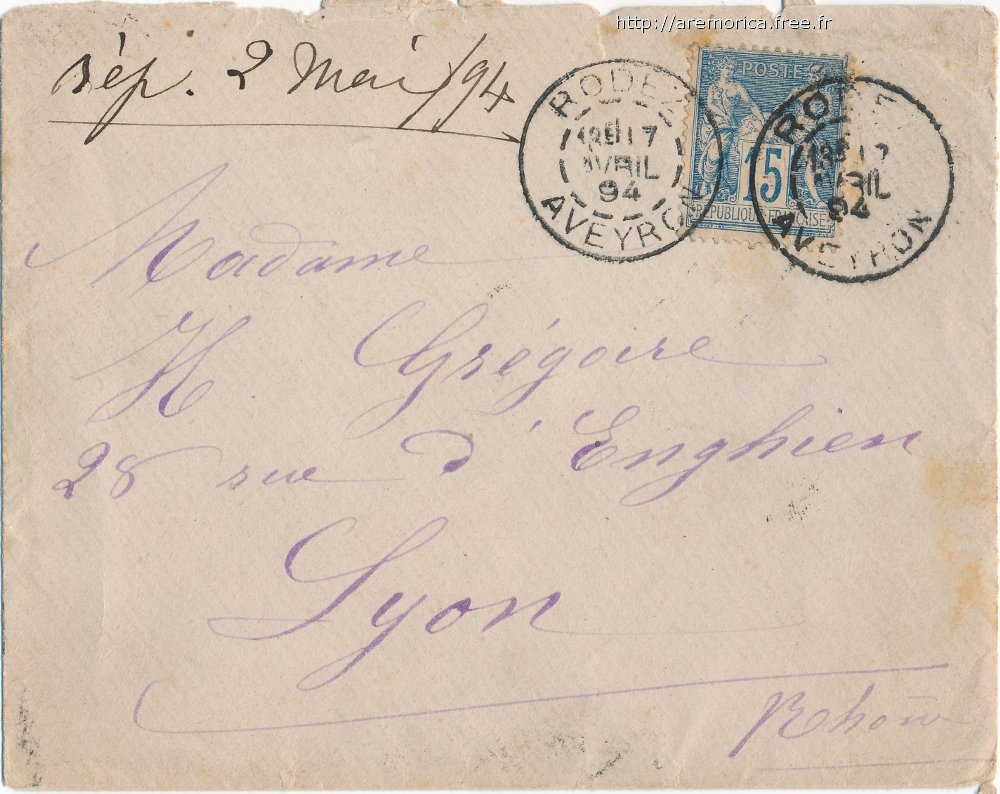 http://aremorica.free.fr
rép. 2 Mai/94
RODEZ
17
AVRIL
94
AVEYRON
POSTE
15
REPUBLIQUE FRANÇAISE
17
AVRIL
94
AVEYRON
Madame
H. Grégoire
28 rue d'Enghien
Lyon
Rhône